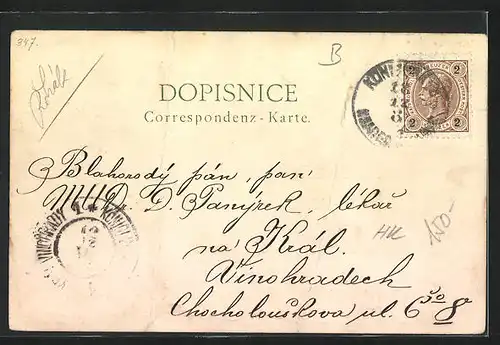 347.
B
DOPISNICE
Correspondenz - Karte.
2 2
Blahorodý pán, pan
MUDr. D. Panýrek, lékař
na Král.
Vinohradech
Chocholouškova ul. čo 8
HK 150-